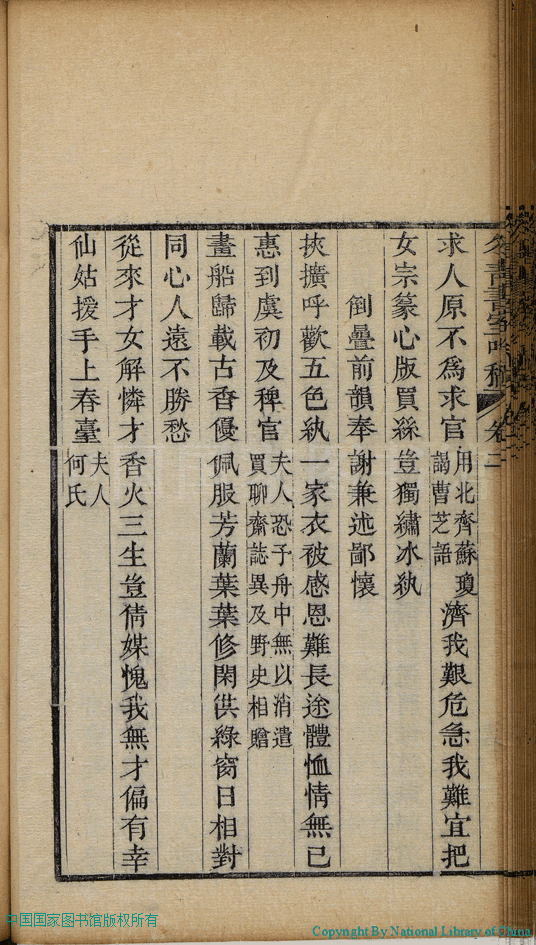 求人原不為求官用北齊蘇瓊謁曹芝語濟我艱危急我難宜把
女宗篆心版買絲豈獨繡冰紈
倒疊前韻奉謝兼述鄙懷
挾擴呼歡五色紈一家衣被感恩難長途體恤情無已
惠到虞初及稗官夫人恐予舟中無以消遣買聊齋誌異及野史相贈
畫船歸載古香優佩服芳蘭葉葉修閑供綠窗日相對
同心人遠不勝愁
從來才女解憐才香火三生豈倩媒愧我無才偏有幸
仙姑援手上春臺夫人何氏
卷二
中国国家图书馆版权所有
Copyright By National Library of China